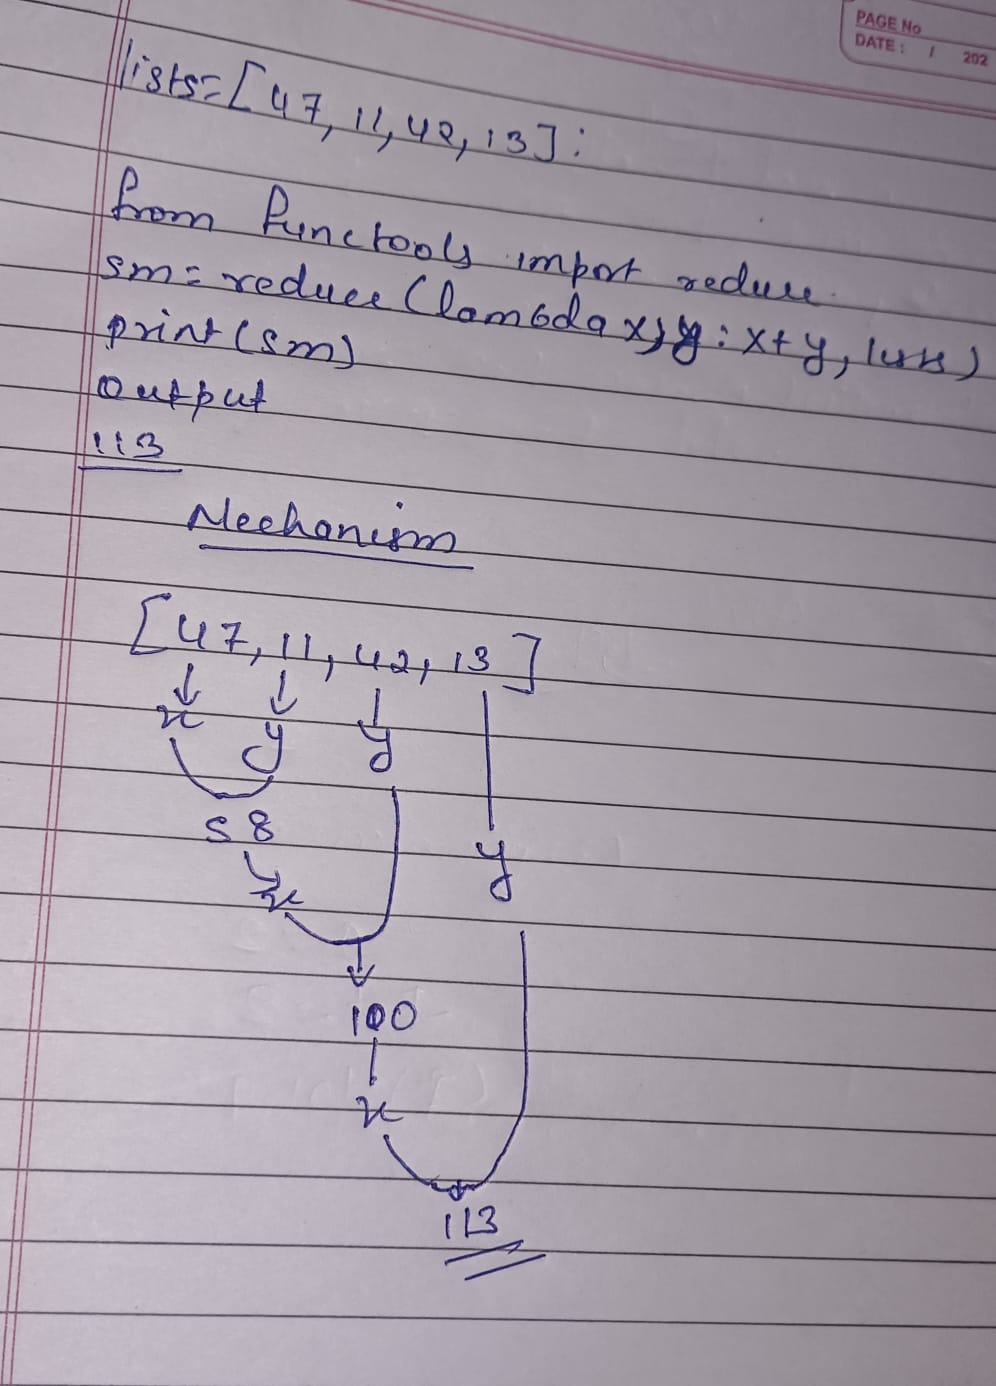 PAGE No
DATE: / 202
lists=[47, 11, 42, 13]:
from functools import reduce.
sm= reduce (lambda x, y: x+y, lists)
print(sm)
output
113
Mechanism
[47, 11, 42, 13]
x y y
58
y
x
100
x
113